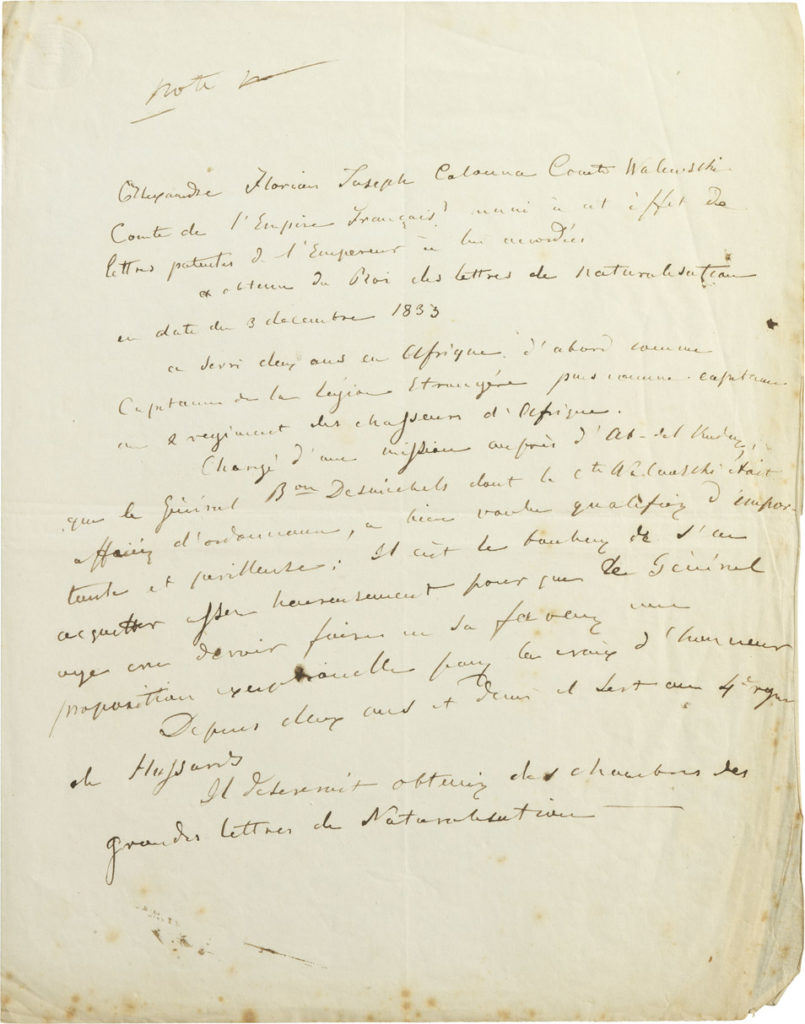 note
Alexandre Florian Joseph Colonna Comte Walewski
Comte de l'Empire Français muni à cet effet de
lettres patentes de l'Empereur à lui accordées
a obtenu du Roi des lettres de naturalisation
en date du 3 decembre 1833
a servi deux ans en Afrique d'abord comme
Capitaine de la Légion Etrangère puis comme capitaine
au 2 regiment des chasseurs d'Afrique.
Chargé d'une mission auprès d'Ab-del Kader,
que le Général Bon Desmichels dont le Cte Walewski était
officier d'ordonnance, a bien voulu qualifier d'impor-
tante et perilleuse; Il eût le bonheur de s'en
acquitter assez heureusement pour que le Général
aye cru devoir faire en sa faveur une
proposition exceptionelle pour la croix d'honneur
Depuis deux ans et demi il sert au 4e regt
de Hussards
Il desirerait obtenir des chambres des
grandes lettres de Naturalisation